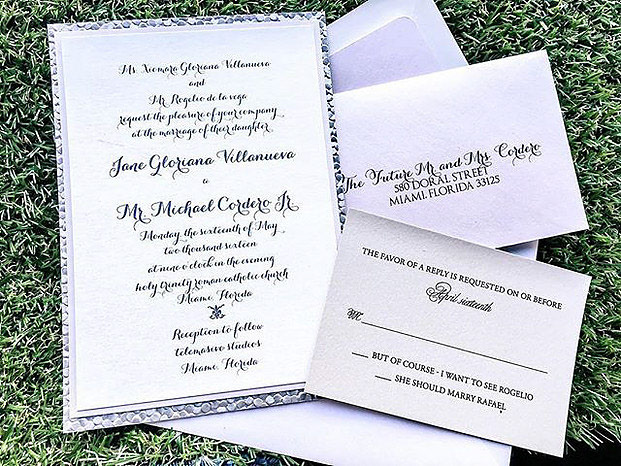 Ms. Xiomara Gloriana Villanueva
and
Mr Rogelio de la vega
request the pleasure of your company
at the marriage of their daughter
Jane Gloriana Villanueva
to
Mr. Michael Cordero Jr
Monday, the sixteenth of May
two thousand sixteen
at nine o'clock in the evening
holy trinity roman catholic church
Miami, Florida
Reception to follow
telemasivo studios
Miami, Florida
The Future Mr and Mrs. Cordero
580 DORAL STREET
MIAMI FLORIDA 33125
THE FAVOR OF A REPLY IS REQUESTED ON OR BEFORE
April sixteenth
M
BUT OF COURSE - I WANT TO SEE ROGELIO
SHE SHOULD MARRY RAFAEL